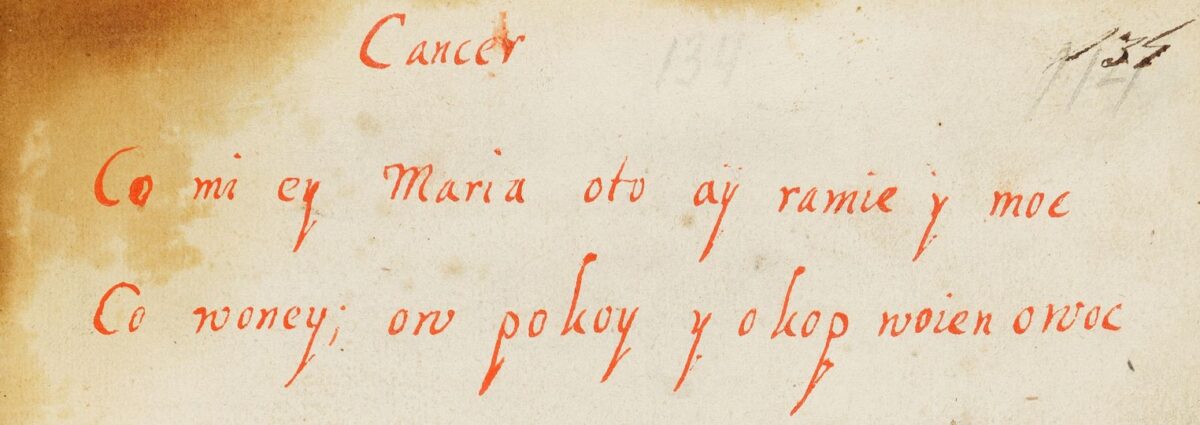 Cancer
Co mi ey Maria oto aÿ ramie ÿ moc
Co woney; ow pokoy y okop woien owoc